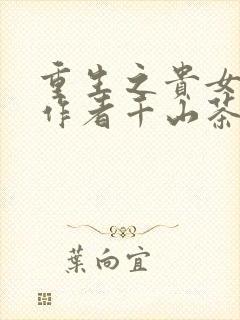 重生之貴女
作者千山茶
葉向宜